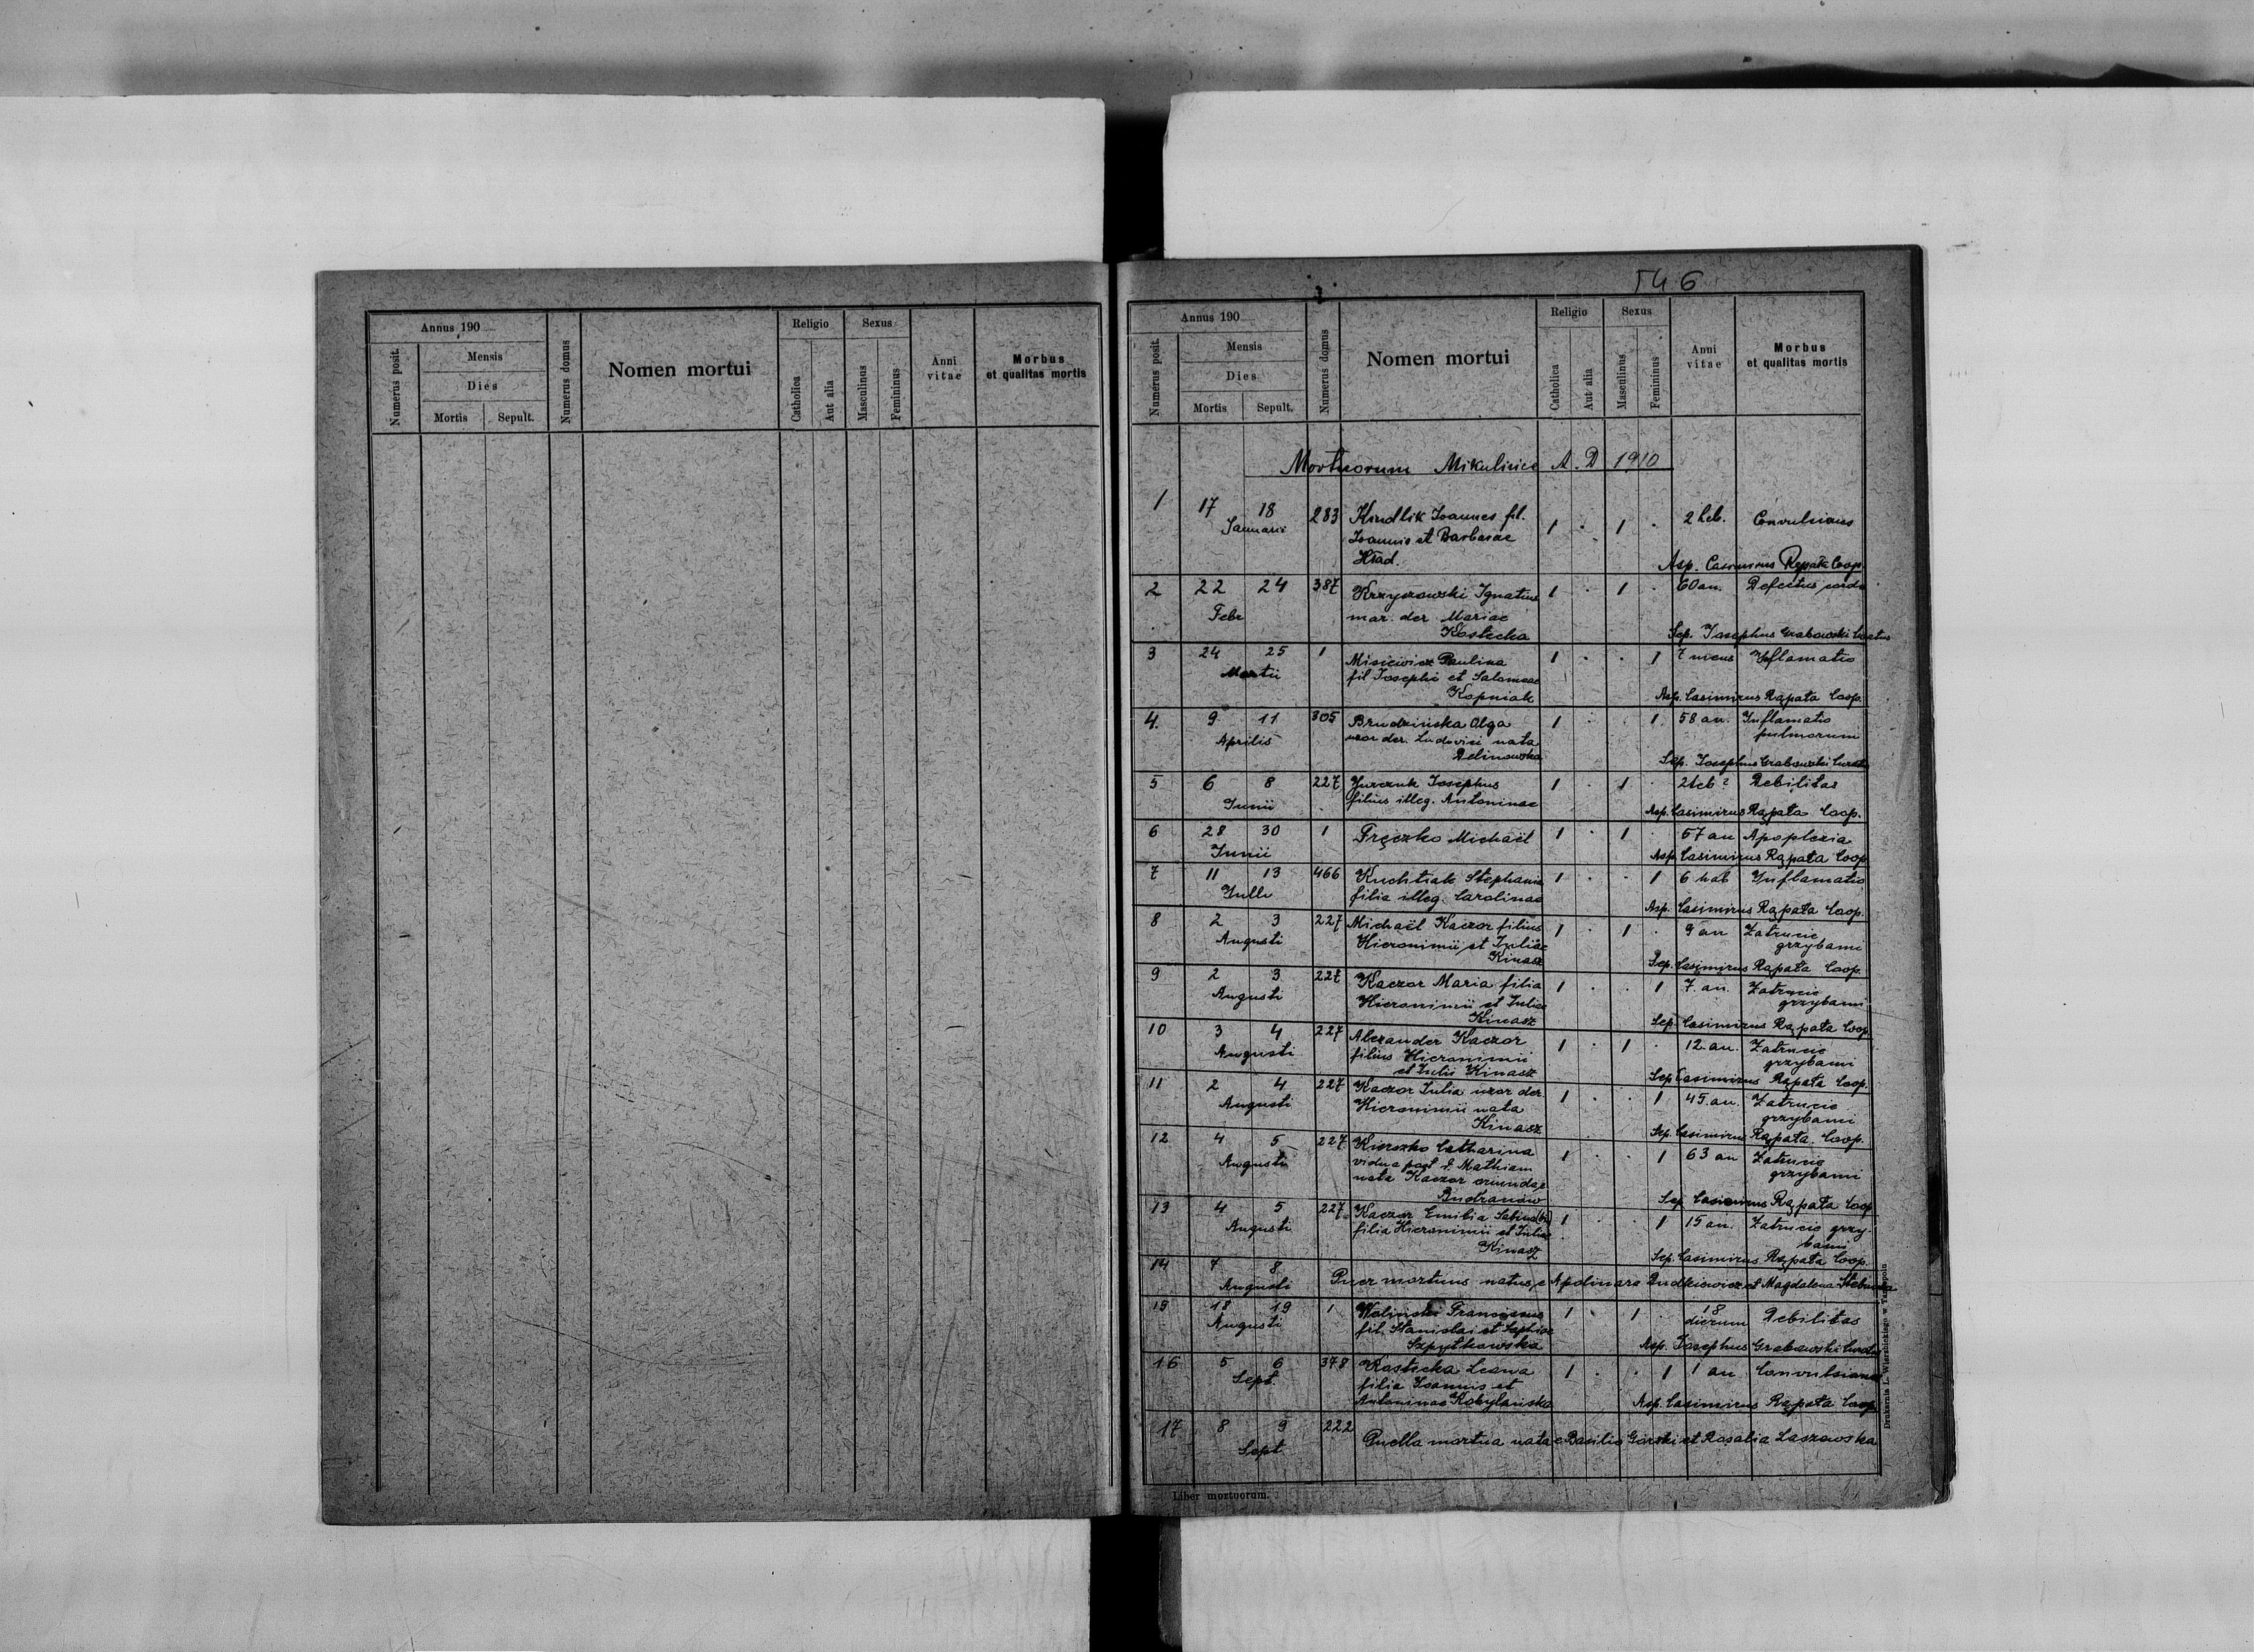 Annus 190
Numerus posit.
Mensis
Dies
Mortis
Sepult.
Numerus domus
Nomen mortui
Religio
Catholica
Aut alia
Sexus
Masculinus
Femininus
Anni vitae
Morbus
et qualitas mortis
546
Annus 190
Numerus posit.
Mensis
Dies
Mortis
Sepult.
Numerus domus
Nomen mortui
Religio
Catholica
Aut alia
Sexus
Masculinus
Femininus
Anni vitae
Morbus
et qualitas mortis
Mortuorum Mikulince A. D 1910
1 17 18 283 Kindlik Joannes fil. 1 . 1 . 2 heb. Convulsiones
Januarii Joannis et Barbarae
Hład.
Asp. Casimirus Rąpała Coop.
2 22 24 387 Krzyżowski Ignatius 1 . 1 . 60 an. Defectus cordis
Febr mar. der. Mariae
Kostecka
Sep. Josephus Grabowski Curatus
3 24 25 1 Misiewicz Paulina 1 . . 1 7 mens Inflamatio
Martii fil Josephi et Salomeae
Kopniak
Asp. Casimirus Rąpała Coop.
4. 9 11 305 Brudzińska Olga 1 . . 1 58 an. Inflamatio
Aprilis uxor der. Ludovici nata pulmorum
Delinowska
Sep. Josephus Grabowski Curatus
5 6 8 227 Jurczuk Josephus 1 . 1 . 2 heb Debilitas
Junii filius illeg. Antoninae
Asp. Casimirus Rąpała Coop.
6 28 30 1 Fręczko Michaël 1 . 1 . 67 an Apoplexia
Junii
Asp. Casimirus Rąpała Coop
7 11 13 466 Kuchtiak Stephania 1 . . 1 6 heb Inflamatio
Julii filia illeg. Carolinae
Asp. Casimirus Rąpała Coop.
8 2 3 227 Michaël Kaczor filius 1 . 1 . 9 an Zatrucie
Augusti Hieronimii et Juliae grzybami
Kinasz
Sep. Casimirus Rąpała Coop.
9 2 3 227 Kaczor Maria filia 1 . . 1 7. an. Zatrucie
Augusti Hieronimii et Juliae grzybami
Kinasz
Sep. Casimirus Rąpała Coop.
10 3 4 227 Alexander Kaczor 1 . 1 . 12. an. Zatrucie
Augusti filius Hieronimii grzybami
et Julii Kinasz
Sep Casimirus Rąpała Coop.
11 2 4 227 Kaczor Julia uxor der. 1 . . 1 45. an. Zatrucie
Augusti Hieronimii nata grzybami
Kinasz
Sep. Casimirus Rąpała. Coop.
12 4 5 227 Kierszko Catharina 1 . . 1 63 an Zatrucie
Augusti vidua post Mathiam grzybami
nata Kaczor oriunda e
Budzanów
Sep Casimirus Rąpała Coop
13 4 5 227 Kaczor Emilia Sabina 1 . . 1 15 an. Zatrucie grzy-
Augusti filia Hieronimii et Juliae bami
Kinasz
Sep. Casimirus Rąpała Coop.
14 7 8 Puer mortuus natus e Apolinare Dudkiewicz et Magdalena
Augusti
15 18 19 1 Woliński Franciscus 1 . 1 . 18 Debilitas
Augusti fil. Stanislai et Sophiae dierum
Szpytkowska
Asp. Josephus Grabowski Curatus
16 5 6 378 Kostecka Leona 1 . . 1 1 an Convulsiones
Sept. filia Joannis et
Antoninae Kobylańska
Asp. Casimirus Rąpała Coop
17 8 9 222 Puella mortua nata e Basilio Górski et Rosalia Laszowska
Sept
Liber mortuorum.
Drukarnia L. Wierzbickiego w Tarnopolu